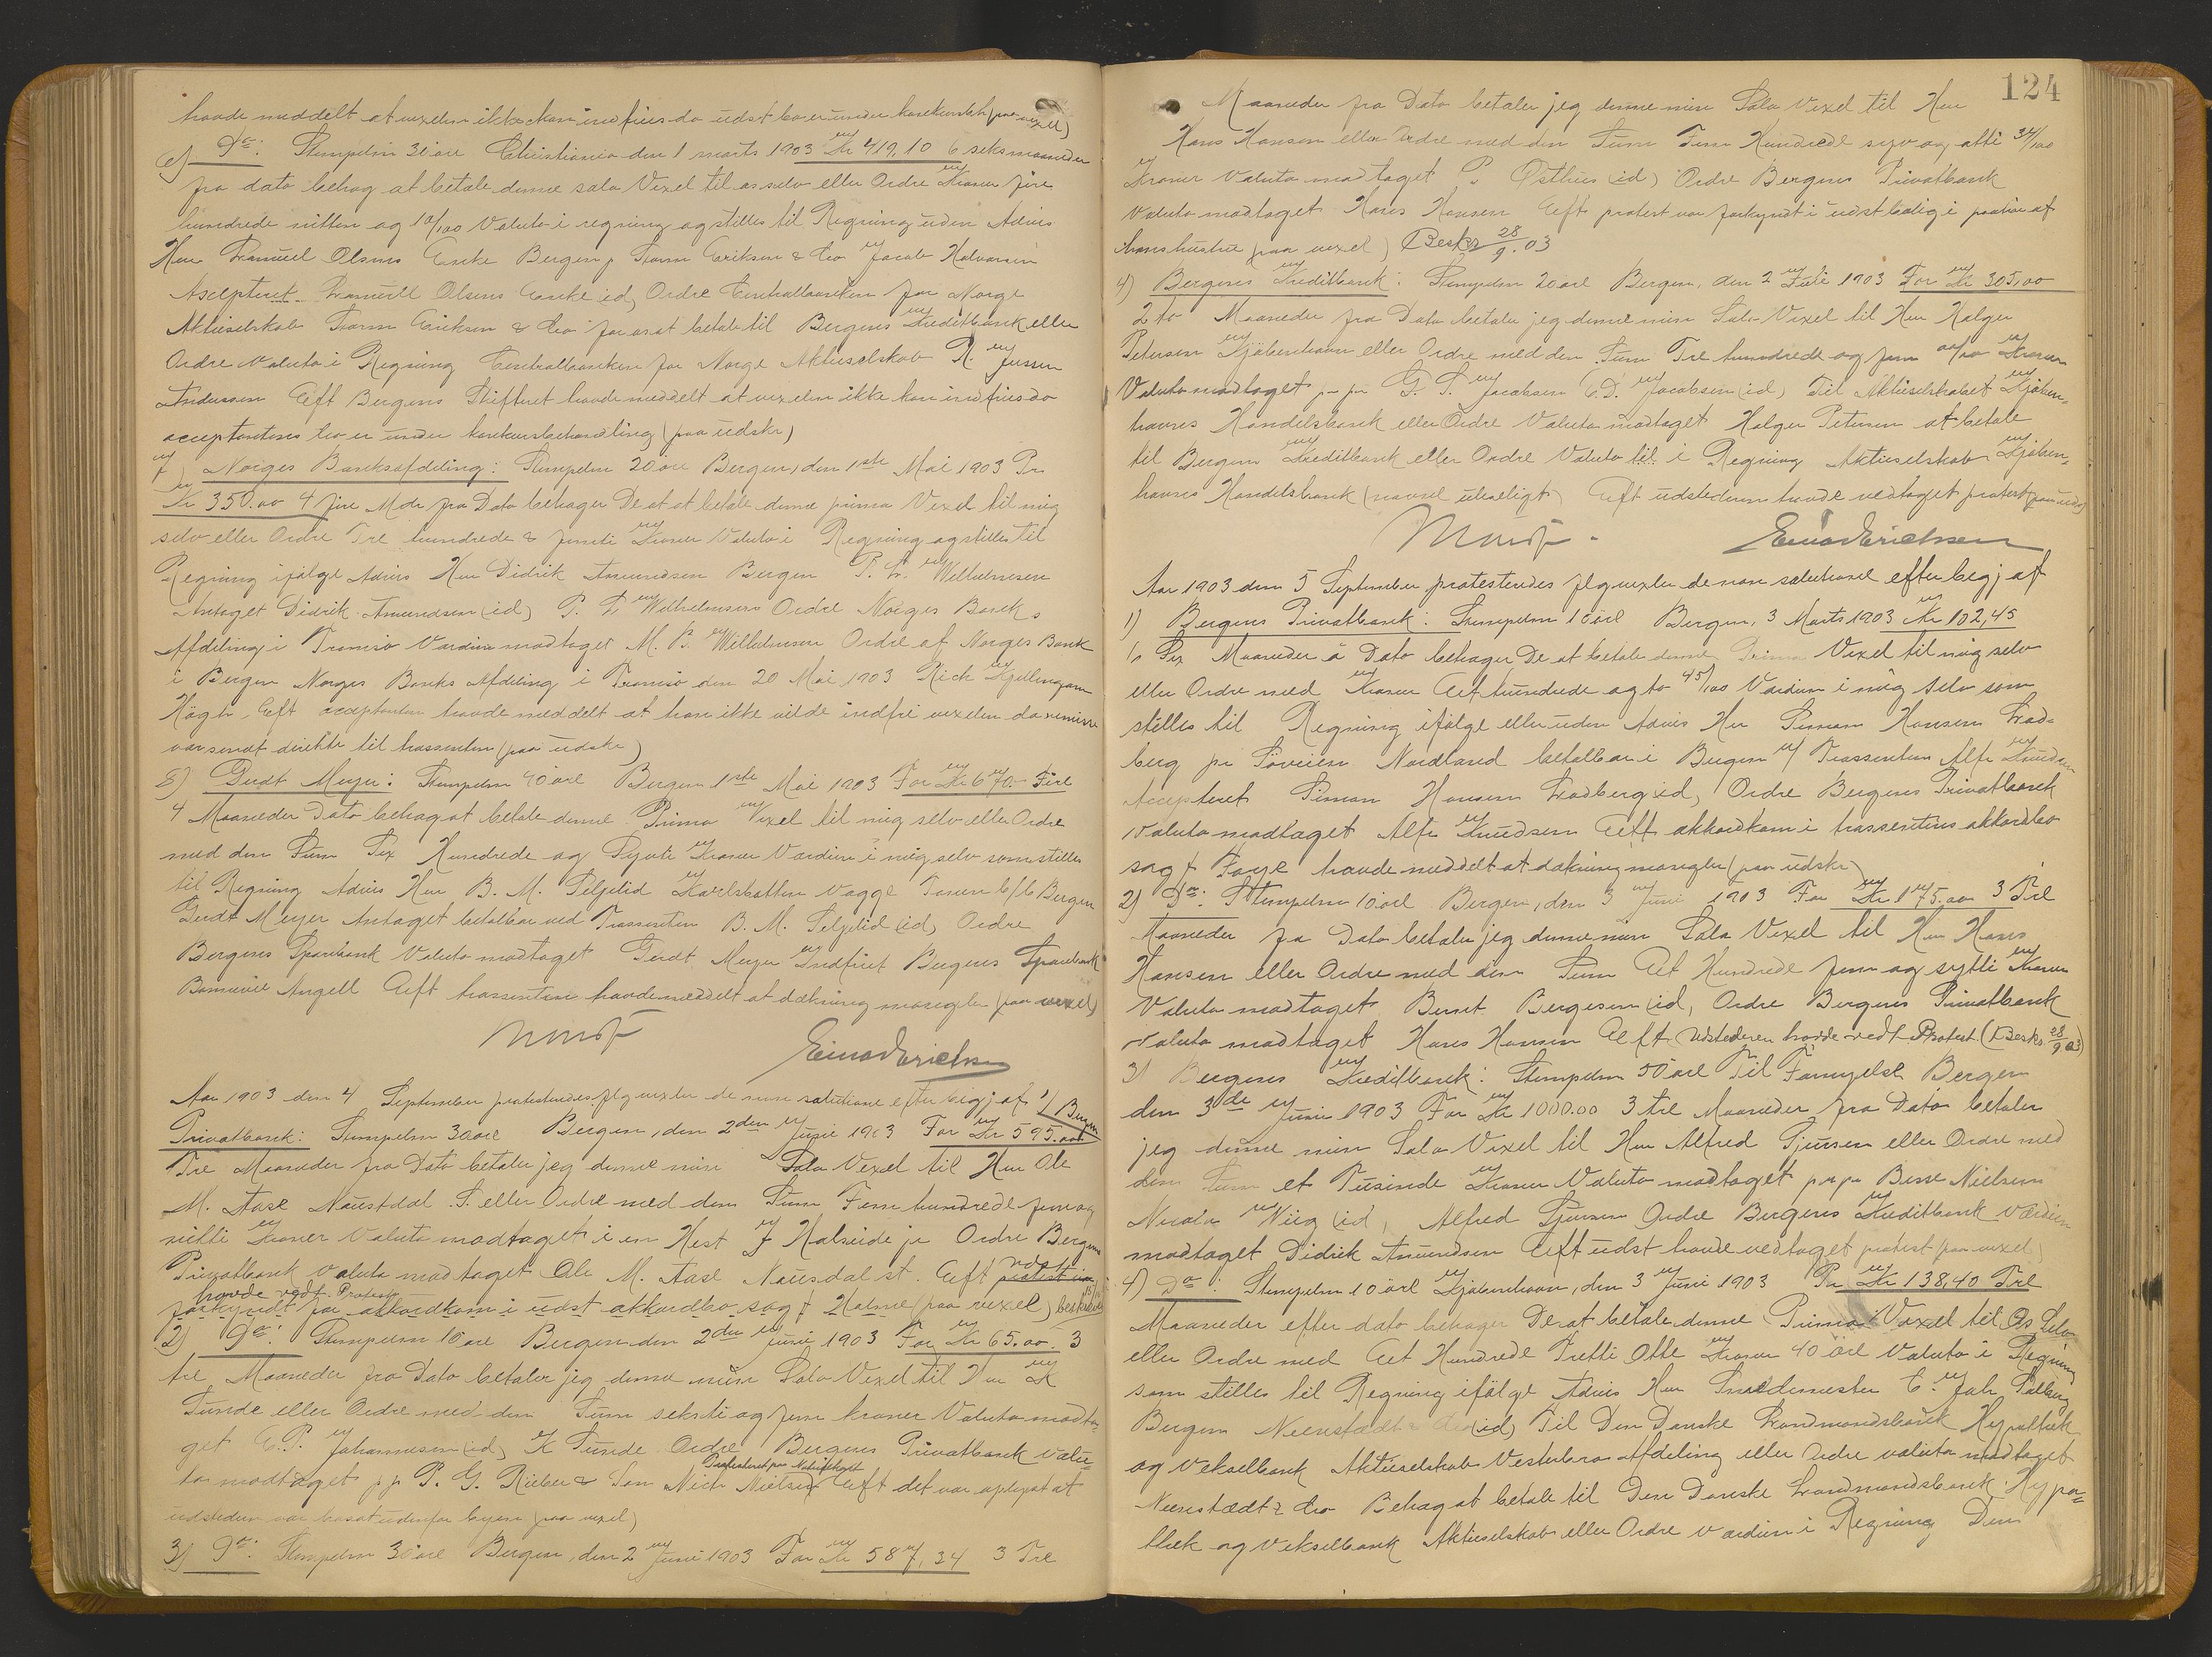 havde meddelt at vexelen ikke kan indfries da udst bo er under konkursbeh (paa vexel)
e) Do: Stempelm 30 öre Christiania den 1 marts 1903 Kr 419,10 6 seks maaneder
fra dato behag at betale denne sola Vexel til os selv eller Ordre Kroner fire
hundrede nitten og 10/100 Valuta i regning og stilles til Regning uden Advis
Herr Olsens Enke Bergen p Eriksen & Co Jacob Halvorsen
Accepteret Olsens Enke (id) Ordre Centralbanken for Norge
Aktieselskab Eriksen & Co for os at betale til Bergens Kreditbank eller
Ordre Valuta i Regning Centralbanken for Norge Aktieselskab R. Jensen
Andersen Eeft Bergens Skifteret havde meddelt at vexelen ikke kan indfries da
acceptantens bo er under konkursbehandling (paa udskr)
7) Norges Banks afdeling: Stempelm 20 öre Bergen, den 1ste Mai 1903 Pr
Kr 350.00 4 fire Mdr fra Dato behager De at at betale denne prima Vexel til mig
selv eller Ordre Tre hundrede & femti Kroner Valuta i Regning og stilles til
Regning ifölge Advis Herr Didrik Amundsen Bergen P. L. Wilhelmsen
Antaget Didrik Amundsen (id) P. L. Wilhelmsen Ordre Norges Banks
Afdeling i Tromsö Værdien modtaget M. B. Wilhelmsen Ordre af Norges Bank
i Bergen Norges Banks Afdeling i Tromsö den 20 Mai 1903 Rich Kjeldingam
Högh. Eeft acceptanten havde meddelt at han ikke vilde indfri vexelen da remisse
var sendt direkte til trassenten (paa udskr)
8) Gerdt Meyer: Stempelm 40 öre Bergen 1ste Mai 1903 For Kr 670.- Fire
4 Maaneder Dato behag at betale denne Prima Vexel til mig selv eller Ordre
med den Sum Sex Hundrede og Syvti Kroner Værdien i mig selv som stilles
til Regning Advis Herr B. M. Seljelid Karlsbotten Vagge Tanen b/b Bergen
Gerdt Meyer Antaget betalbar ved Trassenten B. M. Seljelid (id) Ordre
Bergens Sparebank Valuta modtaget Gerdt Meyer Indfriet Bergens Sparebank
Angell Eeft trassenten havde meddelt at dækning mangler (paa vexel)
Einar Erichsen
Aar 1903 den 4 September protesteredes flg vexler de non solutione efter begj af 1) Bergens
Privatbank: Stempelm 30 öre Bergen, den 2den Juni 1903 For Kr 595.00
Tre Maaneder fra Dato betaler jeg denne min Sola Vexel til Herr Ole
M. Aase Naustdal S. eller Ordre med den Sum Fem hundrede fem og
nitti Kroner Valuta modtaget i en Hest J Halseide jr Ordre Bergens
Privatbank Valuta modtaget Ole M. Aase Nausdal st. Eeft udst protest var
havde vedt. Protest
forkyndt for akkordkom i udst akkordbo sagf Holme (paa vexel)
2) Do: Stempelm 10 öre Bergen den 2den Juni 1903 For Kr 65.00. 3
tre Maaneder fra Dato betaler jeg denne min Sola Vexel til Herr K
Tunde eller Ordre med den Sum seksti og fem kroner Valuta modta-
get E. P. Johannesen (id) K Tunde Ordre Bergens Privatbank valu-
Protesteret paa Notarialkont
ta modtaget pp P. G. Rieber & Søn Nich Nielsen Eeft det var oplyst at
udstederen var bosat udenfor byen (paa vexel)
3) Do: Stempelm 30 öre Bergen, den 2 Juni 1903 For Kr 587,34 3 Tre
124
Maaneder fra Dato betaler jeg denne min Sola Vexel til Herr
Hans Hansen eller Ordre med den Sum Fem Hundrede syv og otti 34/100
Kroner Valuta modtaget P. Østhus (id) Ordre Bergens Privatbank
Valuta modtaget Hans Hansen Eeft protest var forkyndt i udst bolig i paahør af
hans hustru (paa vexel) (Beskr 28/9.03
4) Bergens Kreditbank: Stempelm 20 öre Bergen, den 2 Juli 1903 For Kr 305,00
2 to Maaneder fra Dato betaler jeg denne min Sola-Vexel til Herr Holger
Petersen Kjöbenhavn eller Ordre med den Sum Tre hundrede og fem 00/100 Kroner
Valuta modtaget p pr G. S. Jacobsen C. D. Jacobsen (id) Til Aktieselskabet Kjöben-
havns Handelsbank eller Ordre Valuta modtaget Holger Petersen at betale
til Bergens Kreditbank eller Ordre Valuta til i Regning Aktieselskab Kjöben-
havns Handelsbank (navnel uleseligt) Eeft udstederen havde vedtaget protest (paa vexel)
Einar Erichsen
Aar 1903 den 5 September protesteredes flg vexler de non solutione efter begj af
1) Bergens Privatbank: Stempelm 10 öre Bergen, 3 Marts 1903 Kr 102,45
6 Sex Maaneder à Dato behager De at betale denne Prima Vexel til mig selv
eller Ordre med Kroner Eet hundrede og to 45/100 Værdien i mig selv som
stilles til Regning ifölge eller uden Advis Herr Simon Hansen Lad-
berg pr Söveien Nordland betalbar i Bergen / Trassenten Alfr Knudsen
Accepteret Simon Hansen Ladberg (id) Ordre Bergens Privatbank
Valuta modtaget Alfr Knudsen Eeft akkordkom i trassentens akkordbo
sagf Faye havde meddelt at dækning mangler (paa udskr)
2) Do: Stempelm 10 öre Bergen, den 3 Juni 1903 For Kr 175.00 3 Tre
Maaneder fra Dato betaler jeg denne min Sola Vexel til Herr Hans
Hansen eller Ordre med den Sum Eet Hundrede fem og sytti Kroner
Valuta modtaget Bernt Bergesen (id) Ordre Bergens Privatbank
Valuta modtaget Hans Hansen Eeft Udstederen havde vedt Protest (Beskr. 28/9 03)
3) Bergens Kreditbank: Stempelm 50 öre Til Fornyelse Bergen
den 3de Juni 1903 For Kr 1000.00 3 tre Maaneder fra Dato betaler
jeg denne min Sola Vexel til Herr Alfred Gjersen eller Ordre med
den Sum et Tusinde Kroner Valuta modtaget pr pr Nielsen
Nicolay Wiig (id), Alfred Gjersen Ordre Bergens Kreditbank Værdien
modtaget Didrik Amundsen Eeft udst havde vedtaget protest (paa vexel)
4) Do: Stempelm 10 öre Kjöbenhavn, den 3 Juni 1903 Pr Kr 138,40 Tre
Maaneder efter dato behager De at betale denne Prima Vexel til Os Selv
eller Ordre med Eet Hundrede Tretti Otte Kroner 40 öre Valuta i Regning
som stilles til Regning ifölge Advis Herr Snedkermester C. Joh Solberg
Bergen Neenstædt & Co (id) Til Den Danske Landmandsbank Hypothek
og Vekselbank Aktieselskab Vesterbro Afdeling eller Ordre valuta modtaget
Neenstædt & Co Behag at betale til Den Danske Landmandsbank Hypo-
thek og Vekselbank Aktieselskab eller Ordre værdien i Regning Den